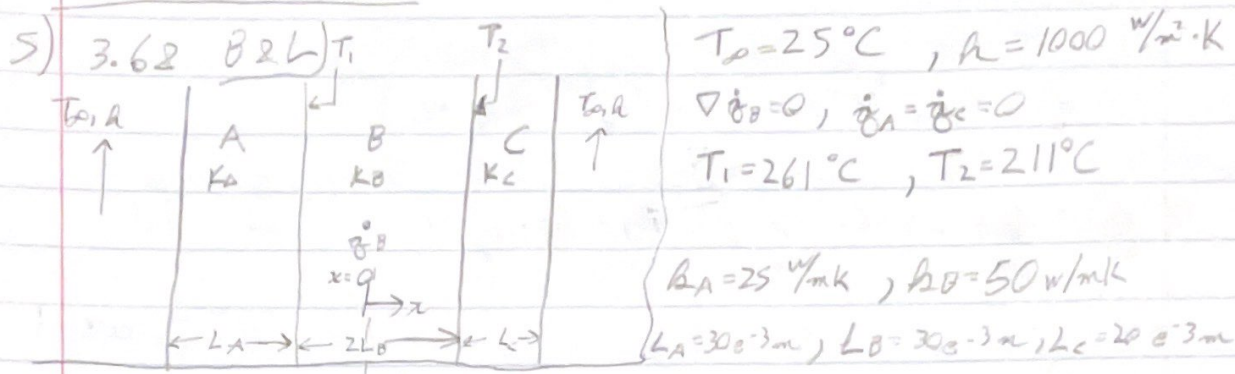 5) 3.68 B&L) T₁ T₂
T∞, h T∞, h
A B C
K_A K_B K_C
q̇_B
x=0
→x
L_A 2L_B L_C
T∞=25°C , h=1000 W/m²·K
∇q̇_B=0, q̇_A=q̇_C=0
T₁=261°C , T₂=211°C
k_A=25 W/mK , k_B=50 W/mK
L_A=30e-3m, L_B=30e-3m, L_C=20e-3m